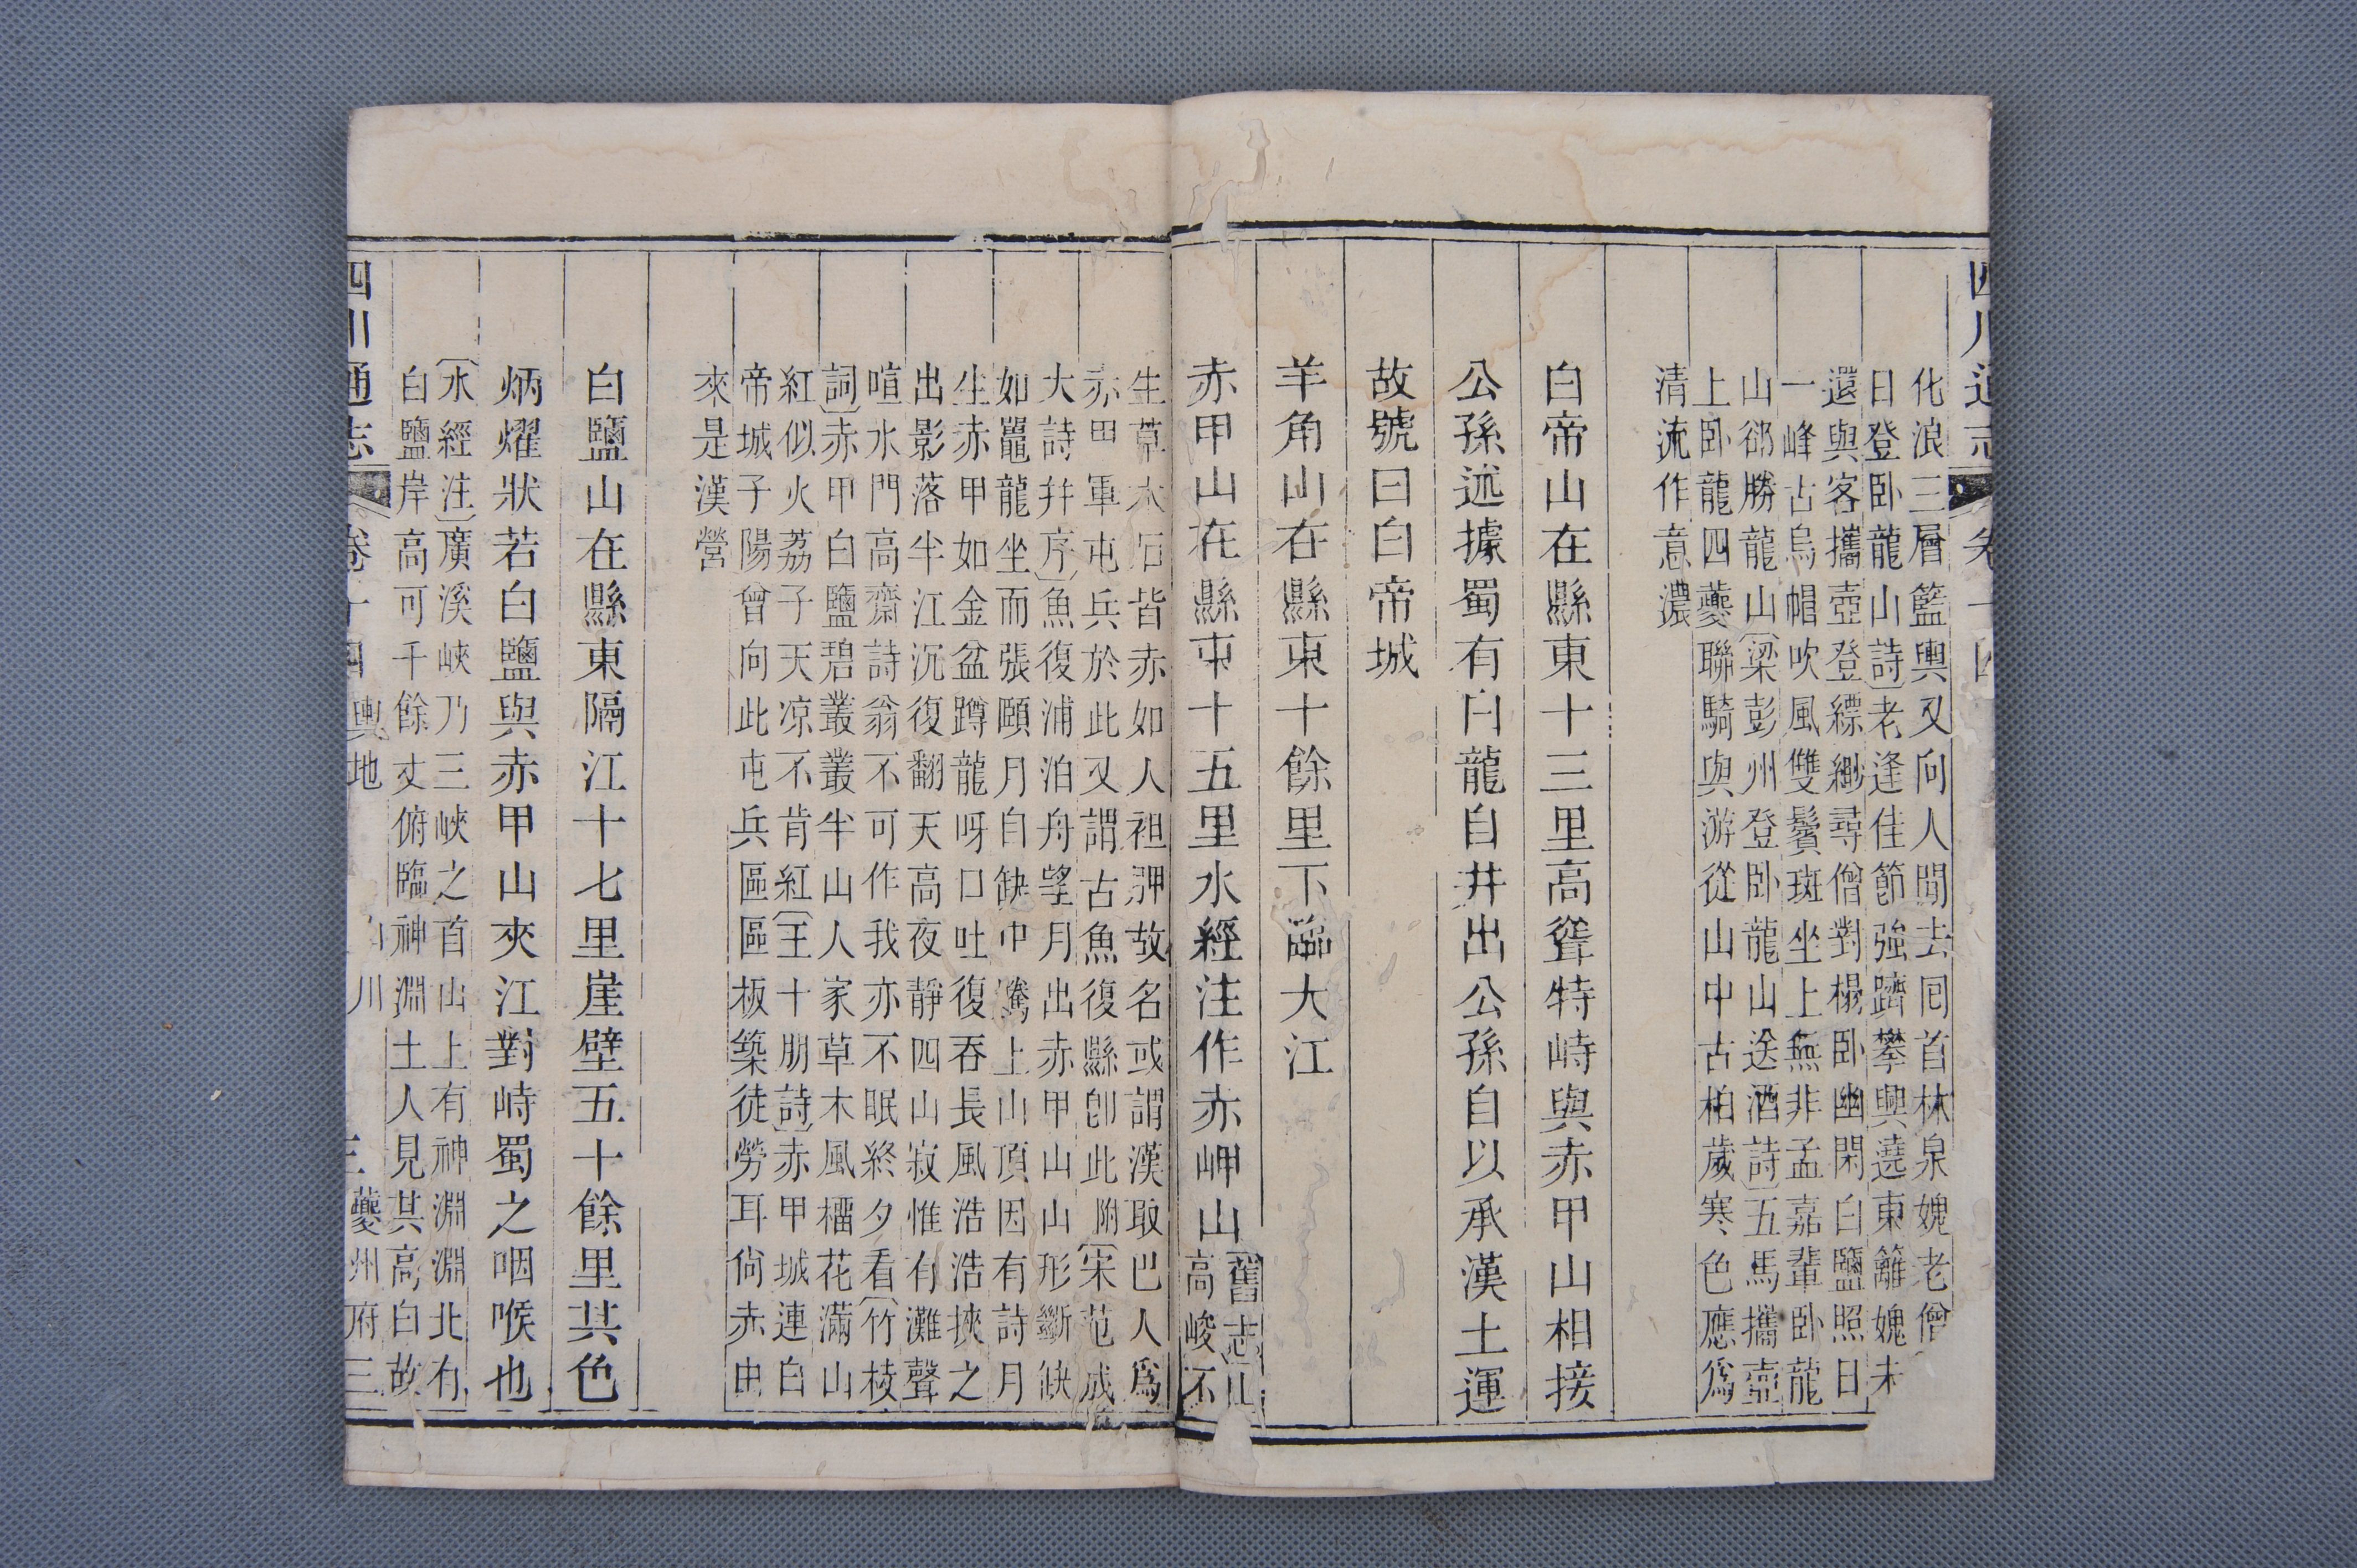 化浪三層籃輿又向人間去囘首林泉媿老僧
日登卧龍山詩老逢佳節強躋攀興遶東籬媿未
還與客攜壺登縹緲尋僧對榻卧幽閑白鹽照日
一峰古烏帽吹風雙鬢斑坐上無非孟嘉輩卧龍
山郤勝龍山梁彭州登卧龍山送酒詩五馬攜壺
上卧龍四夔聯騎與游從山中古柏歲寒色應爲
清流作意濃
白帝山在縣東十三里高聳特峙與赤甲山相接
公孫述據蜀有白龍自井出公孫自以承漢土運
故號曰白帝城
羊角山在縣東十餘里下臨大江
赤甲山在縣東十五里水經注作赤岬山
舊志山
高峻不
生草木石皆赤如人袒胛故名或謂漢取巴人爲
赤甲軍屯兵於此又謂古魚復縣卽此附宋范成
大詩幷序魚復浦泊舟望月出赤甲山山形斷缺
如鼉龍坐而張頤月自缺中騰上山頂因有詩月
生赤甲如金盆蹲龍呀口吐復吞長風浩浩挾之
出影落半江沉復翻天高夜靜四山寂惟有灘聲
喧水門高齋詩翁不可作我亦不眠終夕看竹枝
詞赤甲白鹽碧叢叢半山人家草木風櫺花滿山
紅似火荔子天凉不肯紅王十朋詩赤甲城連白
帝城子陽曾向此屯兵區區板築徒勞耳尙赤由
來是漢營
白鹽山在縣東隔江十七里崖壁五十餘里其色
炳燿狀若白鹽與赤甲山夾江對峙蜀之咽喉也
水經注廣溪峽乃三峽之首山上有神淵淵北有
白鹽岸高可千餘丈俯臨神淵土人見其高白故
四川通志 卷十四 輿地 山川 三 夔州府三